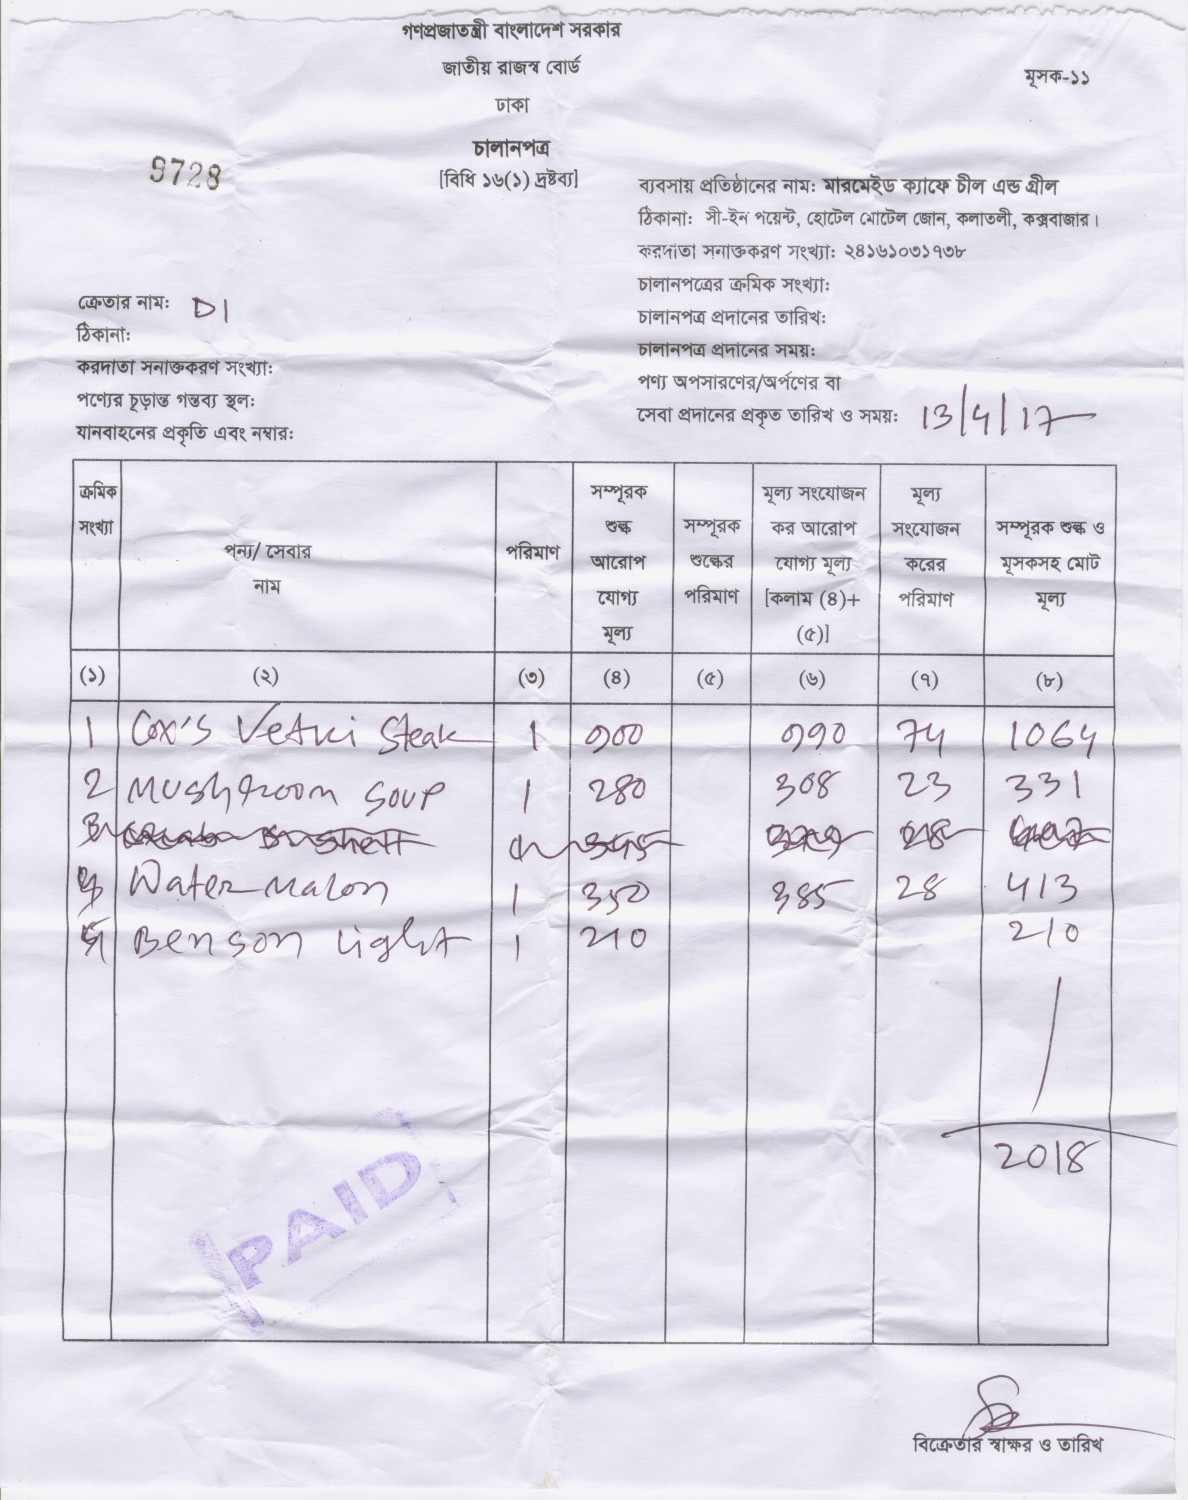 গণপ্রজাতন্ত্রী বাংলাদেশ সরকার
জাতীয় রাজস্ব বোর্ড
মূসক-১১
ঢাকা
চালানপত্র
9728
[বিধি ১৬(১) দ্রষ্টব্য]
ব্যবসায় প্রতিষ্ঠানের নাম: মারমেইড ক্যাফে চীল এন্ড গ্রীল
ঠিকানা: সী-ইন পয়েন্ট, হোটেল মোটেল জোন, কলাতলী, কক্সবাজার।
করদাতা সনাক্তকরণ সংখ্যা: ২৪১৬১০৩১৭৩৮
চালানপত্রের ক্রমিক সংখ্যা:
চালানপত্র প্রদানের তারিখ:
চালানপত্র প্রদানের সময়:
পণ্য অপসারণের/অর্পণের বা
সেবা প্রদানের প্রকৃত তারিখ ও সময়: 13/4/17
ক্রেতার নাম: D1
ঠিকানা:
করদাতা সনাক্তকরণ সংখ্যা:
পণ্যের চূড়ান্ত গন্তব্য স্থল:
যানবাহনের প্রকৃতি এবং নম্বার:
ক্রমিক সংখ্যা পন্য/ সেবার নাম পরিমাণ সম্পূরক শুল্ক আরোপ যোগ্য মূল্য সম্পূরক শুল্কের পরিমাণ মূল্য সংযোজন কর আরোপ যোগ্য মূল্য [কলাম (৪)+(৫)] মূল্য সংযোজন করের পরিমাণ সম্পূরক শুল্ক ও মূসকসহ মোট মূল্য
(১) (২) (৩) (৪) (৫) (৬) (৭) (৮)
1 Cox's Vetki Steak 1 900 990 74 1064
2 Mushroom Soup 1 280 308 23 331
Water malon 1 350 385 28 413
Benson Light 1 210 210
2018
PAID
বিক্রেতার স্বাক্ষর ও তারিখ